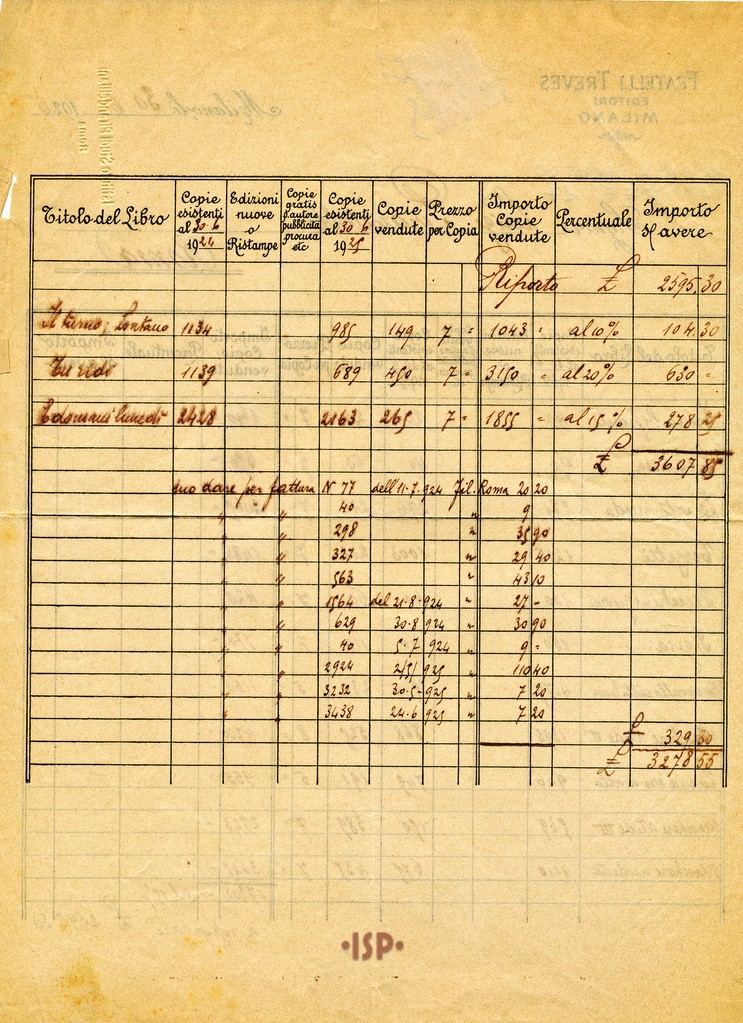 Titolo del Libro | Copie esistenti al 30-6 1924 | Edizioni nuove o Ristampe | Copie gratis d'autore pubblicità procura etc | Copie esistenti al 30-6 1925 | Copie vendute | Prezzo per Copia | Importo Copie vendute | Percentuale | Importo s/ avere
Riporto £ 2595.30
Il turno; Lontano 1134 985 149 7 = 1043 - al 10% 104.30
Tu ridi 1139 689 450 7 = 3150 - al 20% 630 -
E domani lunedì 2428 2163 265 7 = 1855 - al 15% 278 25
£ 3607 85
suo dare per fattura N 77 dell' 11-7-924 fil. Roma 20 20
" " 40 " 9
" " 298 " 35 90
" " 327 " 29 40
" " 563 " 43 10
" " 1564 del 21-8-924 " 27 -
" " 629 30-8 924 " 30 90
" " 40 5-7 924 " 9 -
" " 2924 2/5/ 925 " 110 40
" " 3232 30-5-925 " 7 20
" " 3438 24-6 925 " 7 20
£ 329 30
£ 3278 55
FRATELLI TREVES
EDITORI
MILANO
Milano, 30 6 1925
Studi Pirandelliani
Roma
•ISP•